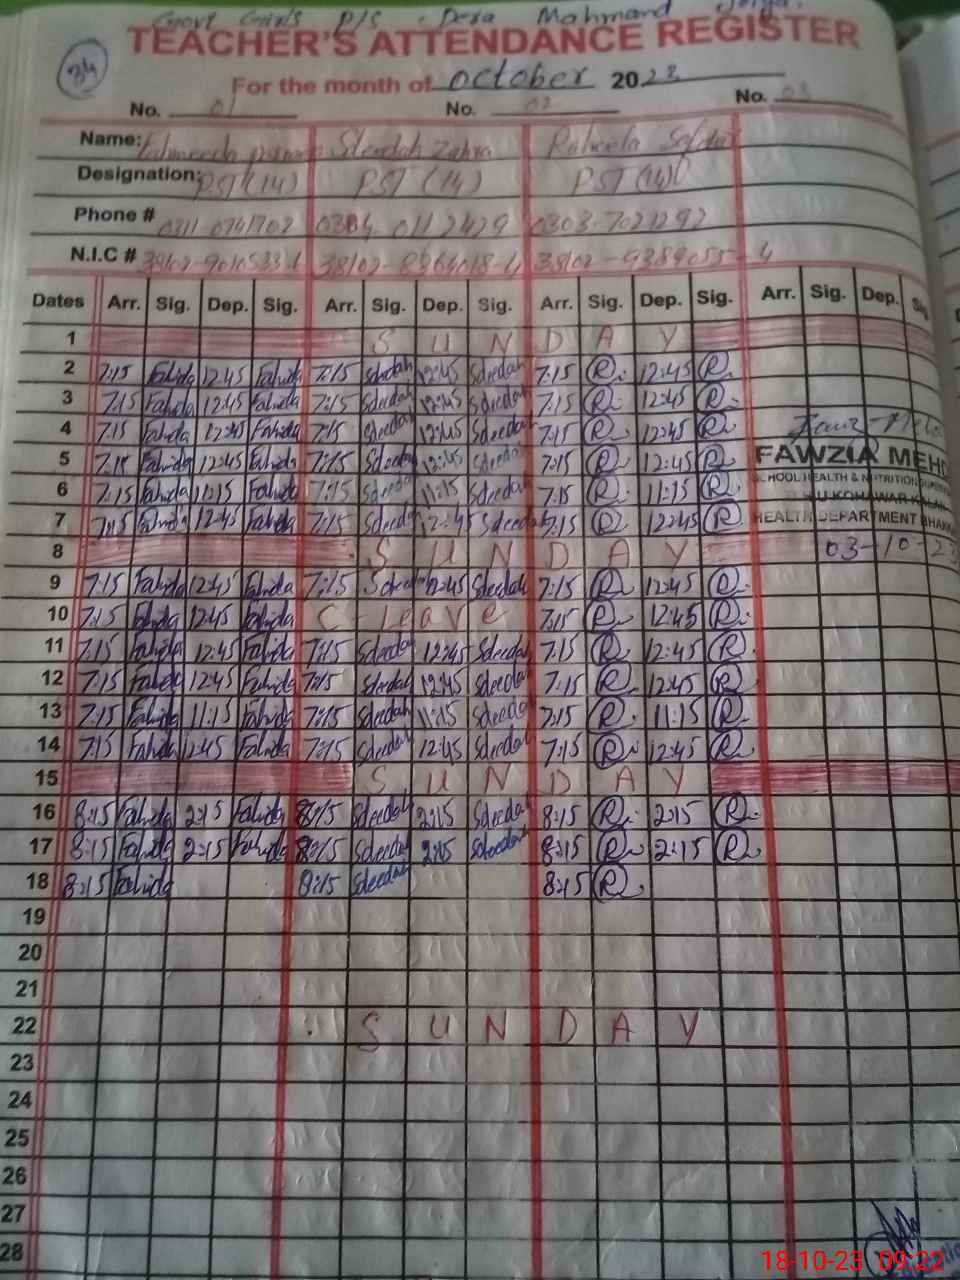 Govt Girls P/S Dera Mahmand
TEACHER'S ATTENDANCE REGISTER
34
For the month of October 2023
No. 01 No. 02 No. 03
Name: Sleedah Zahra Raheela
Designation: PST (14) PST (14) PST (14)
Phone # 0311-0741702 0304-0112429 0303-7021292
N.I.C #
Dates Arr. Sig. Dep. Sig. Arr. Sig. Dep. Sig. Arr. Sig. Dep. Sig. Arr. Sig. Dep. Sig.
1 S U N D A Y
2 7:15 Fahida 12:45 Fahida 7:15 Sdeedah 12:45 Sdeedah 7:15 R 12:45 R
3 7:15 Fahida 12:45 Fahida 7:15 Sdeedah 12:45 Sdeedah 7:15 R 12:45 R
4 7:15 Fahida 12:45 Fahida 7:15 Sdeedah 12:45 Sdeedah 7:15 R 12:45 R
5 7:15 Fahida 12:45 Fahida 7:15 Sdeedah 12:45 Sdeedah 7:15 R 12:45 R FAWZIA MEHD
SCHOOL HEALTH & NUTRITION
6 7:15 Fahida 11:15 Fahida 7:15 Sdeedah 11:15 Sdeedah 7:15 R 11:15 R
7 7:15 Fahida 12:45 Fahida 7:15 Sdeedah 12:45 Sdeedah 7:15 R 12:45 R HEALTH DEPARTMENT BHAKK
8 S U N D A Y 03-10-2
9 7:15 Fahida 12:45 Fahida 7:15 Sdeedah 12:45 Sdeedah 7:15 R 12:45 R
10 7:15 Fahida 12:45 Fahida C-Leave 7:15 R 12:45 R
11 7:15 Fahida 12:45 Fahida 7:15 Sdeedah 12:45 Sdeedah 7:15 R 12:45 R
12 7:15 Fahida 12:45 Fahida 7:15 Sdeedah 12:45 Sdeedah 7:15 R 12:45 R
13 7:15 Fahida 11:15 Fahida 7:15 Sdeedah 11:15 Sdeedah 7:15 R 11:15 R
14 7:15 Fahida 12:45 Fahida 7:15 Sdeedah 12:45 Sdeedah 7:15 R 12:45 R
15 S U N D A Y
16 8:15 Fahida 2:15 Fahida 8:15 Sdeedah 2:15 Sdeedah 8:15 R 2:15 R
17 8:15 Fahida 2:15 Fahida 8:15 Sdeedah 2:15 Sdeedah 8:15 R 2:15 R
18 8:15 Fahida 8:15 Sdeedah 8:15 R
19
20
21
22 S U N D A Y
23
24
25
26
27
28
18-10-23 09:22